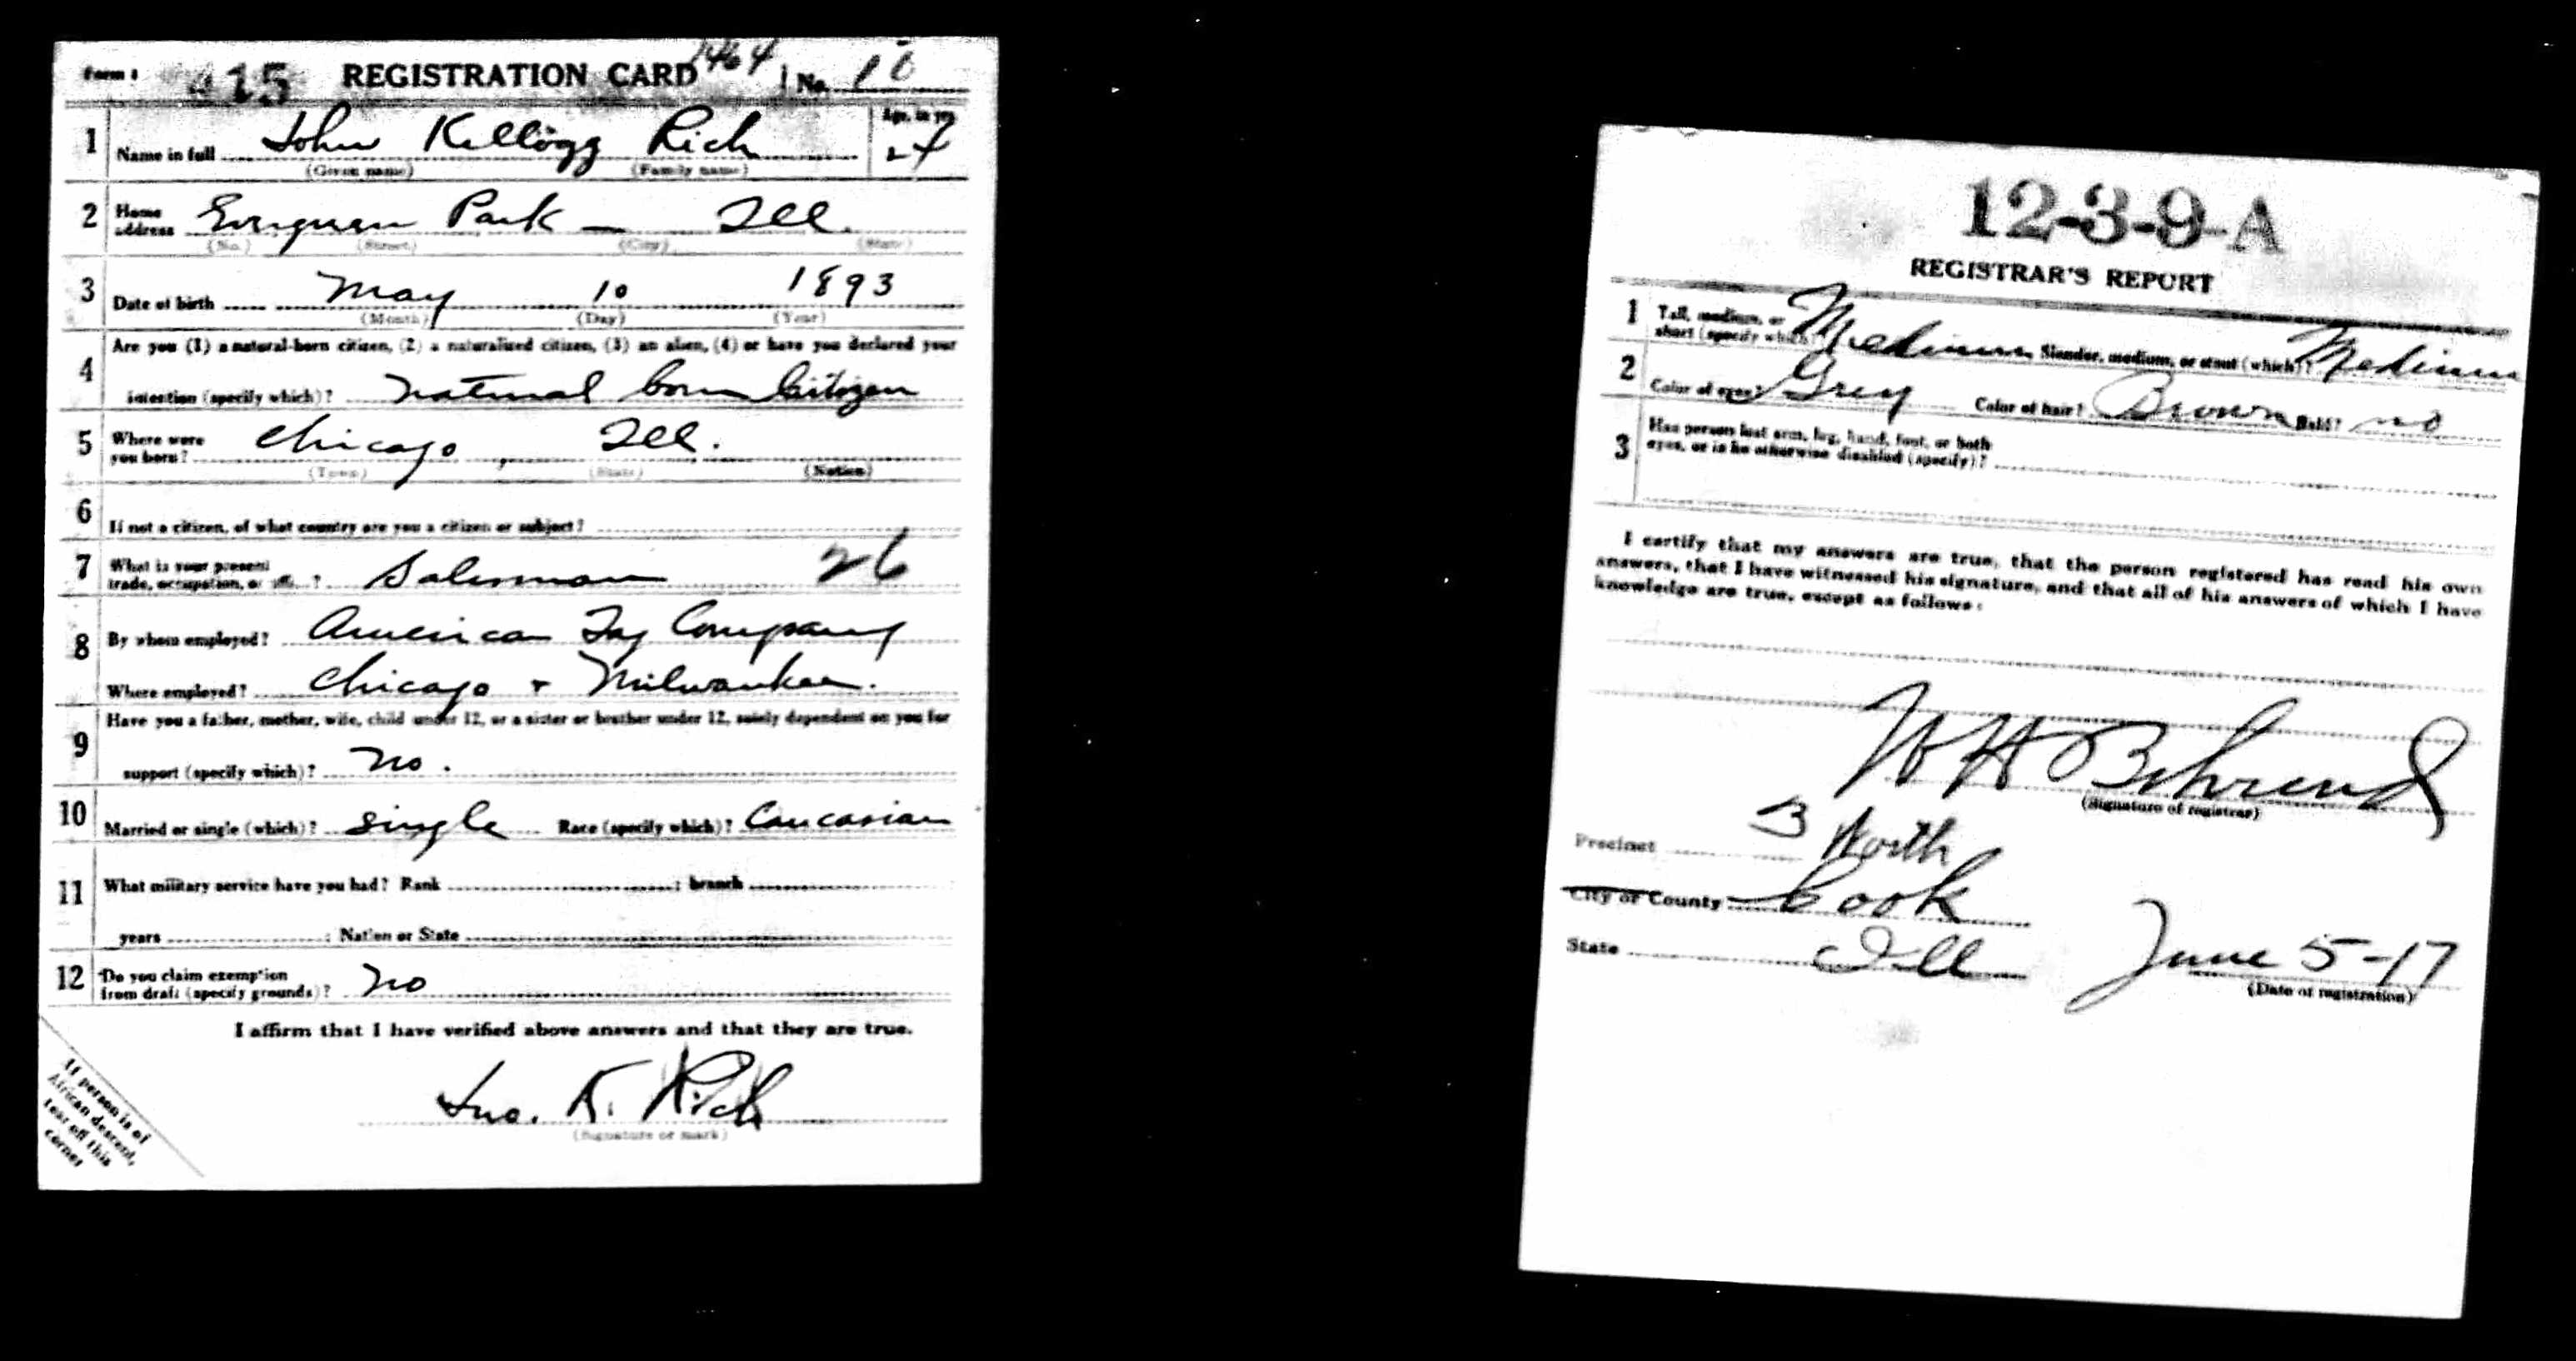 Form 1 15 REGISTRATION CARD 1464 No. 10
1 Name in full John Kellogg Rich Age, in yrs 24
(Given name) (Family name)
2 Home address Evergreen Park — Ill.
(No.) (Street) (City) (State)
3 Date of birth May 10 1893
(Month) (Day) (Year)
Are you (1) a natural-born citizen, (2) a naturalized citizen, (3) an alien, (4) or have you declared your
4 intention (specify which)? Natural born Citizen
5 Where were you born? Chicago, Ill.
(Town) (State) (Nation)
6 If not a citizen, of what country are you a citizen or subject?
7 What is your present trade, occupation, or office? Salesman 26
8 By whom employed? American Tag Company
Where employed? Chicago + Milwaukee.
Have you a father, mother, wife, child under 12, or a sister or brother under 12, solely dependent on you for
9 support (specify which)? No.
10 Married or single (which)? Single Race (specify which)? Caucasian
11 What military service have you had? Rank ; branch
years ; Nation or State
12 Do you claim exemption from draft (specify grounds)? No
I affirm that I have verified above answers and that they are true.
Jno. K. Rich
(Signature or mark)
If person is of
African descent,
tear off this
corner
12-3-9-A
REGISTRAR'S REPORT
1 Tall, medium, or short (specify which)? Medium Slender, medium, or stout (which)? Medium
2 Color of eyes? Grey Color of hair? Brown Bald? No
3 Has person lost arm, leg, hand, foot, or both
eyes, or is he otherwise disabled (specify)?
I certify that my answers are true, that the person registered has read his own
answers, that I have witnessed his signature, and that all of his answers of which I have
knowledge are true, except as follows:
W H Behrend
(Signature of registrar)
Precinct 3 Worth
City or County Cook
State Ill June 5-17
(Date of registration)